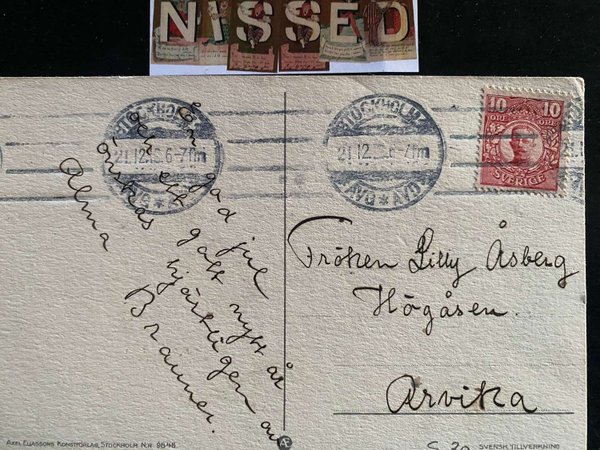 NISSED
STOCKHOLM 1
21.12.16.6-7 fm
AVG ✶ AVD
STOCKHOLM 1
21.12.16.6-7 fm
AVG ✶ AVD
10 10
ÖRE ÖRE
SVERIGE
En god jul
och ett gott nytt år
önskas hjärtligen av
Alma Brauner.
Fröken Lilly Åsberg
Högåsen.
Arvika
AXEL ELIASSONS KONSTFÖRLAG, STOCKHOLM. N:R 9848.
SVENSK TILLVERKNING